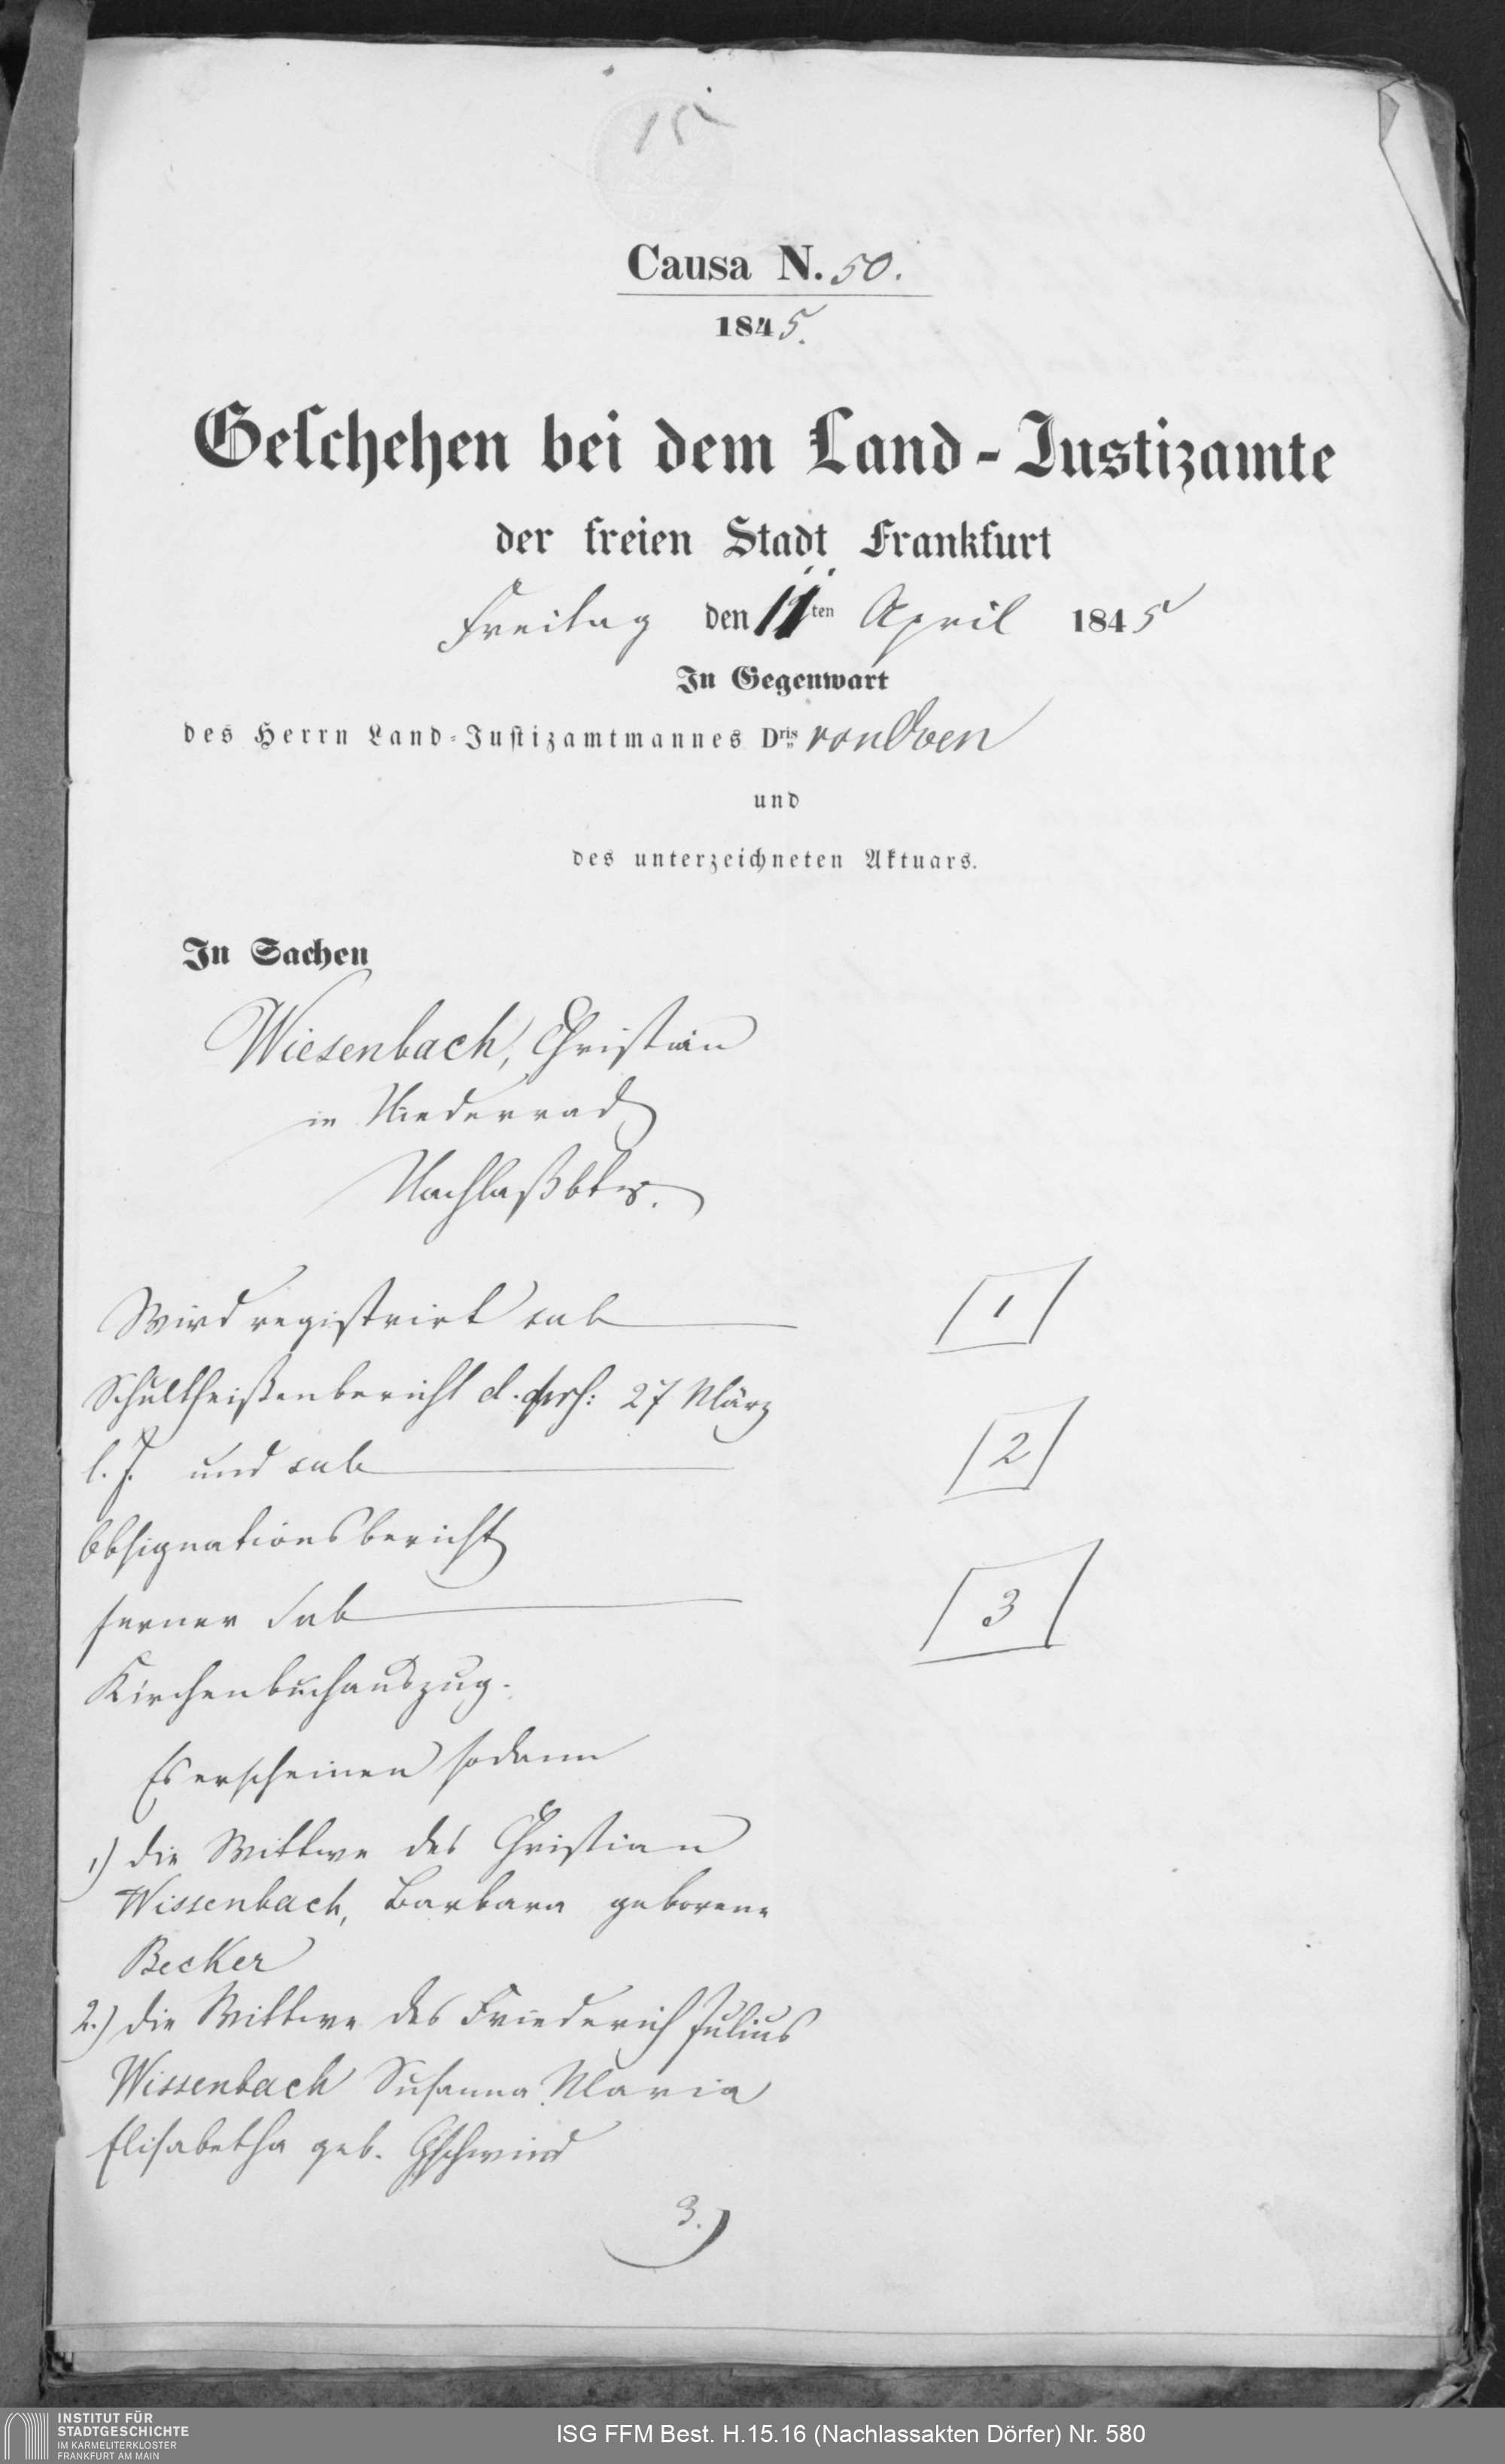 15
Causa N. 50.
1845.
Geschehen bei dem Land-Justizamte
der freien Stadt Frankfurt
Freitag den 11ten April 1845
In Gegenwart
des Herrn Land-Justizamtmannes Dris von Oven
und
des unterzeichneten Aktuars.
In Sachen
Wiesenbach, Christian
in Niederrad
Nachlaß btr.
Wird registrirt sub
1
Schultheißenbericht d. 27 März
l. J. und sub
2
Obsignationsbericht
ferner sub
3
Kirchenbuchauszug.
Es erscheinen sodann
1) die Wittwe des Christian
Wissenbach, Barbara geborene
Becker
2.) die Wittwe des Friederich Julius
Wissenbach Susanna Maria
Elisabetha geb. Gschwind
3.)
INSTITUT FÜR
STADTGESCHICHTE
IM KARMELITERKLOSTER
FRANKFURT AM MAIN
ISG FFM Best. H.15.16 (Nachlassakten Dörfer) Nr. 580